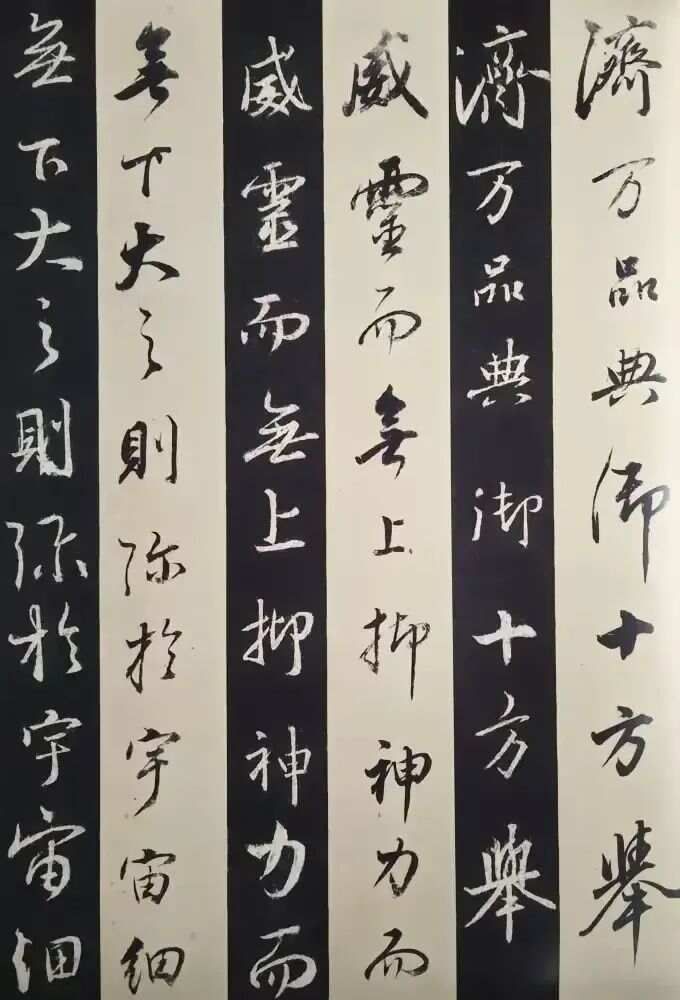 濟万品典御十方舉
濟万品典御十方舉
威靈而無上抑神力而
威靈而無上抑神力而
無下大之則弥於宇宙細
無下大之則弥於宇宙細